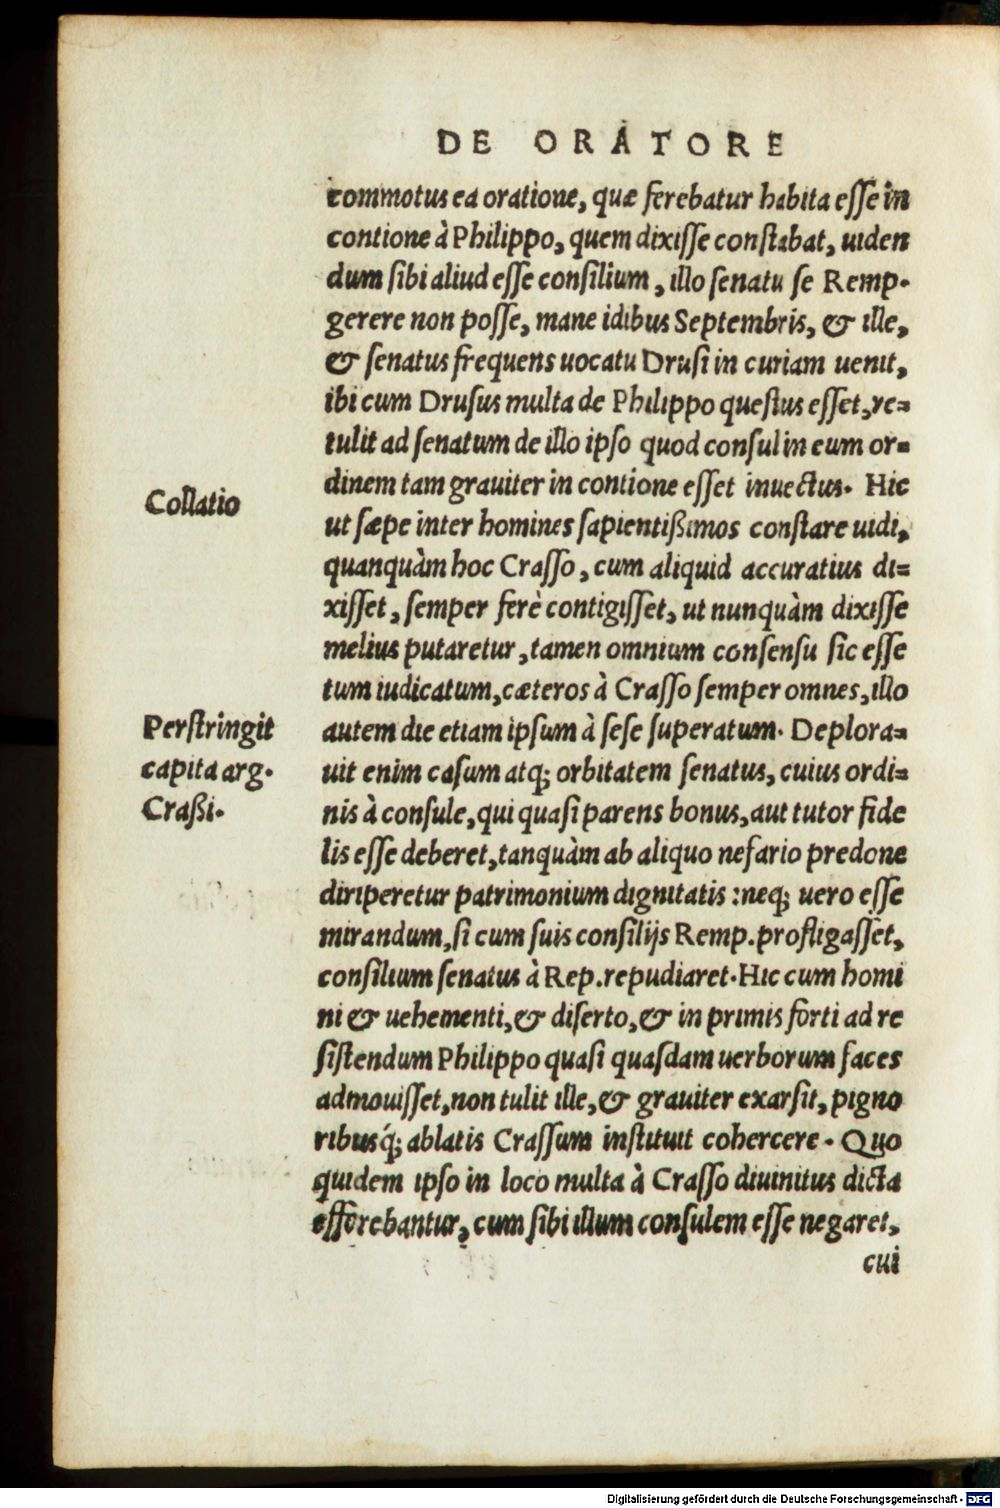 DE ORATORE
commotus ea oratione, quæ ferebatur habita esse in
contione à Philippo, quem dixisse constabat, uiden
dum sibi aliud esse consilium, illo senatu se Remp.
gerere non posse, mane idibus Septembris, & ille,
& senatus frequens uocatu Drusi in curiam uenit,
ibi cum Drusus multa de Philippo questus esset, re=
tulit ad senatum de illo ipso quod consul in eum or=
dinem tam grauiter in contione esset inuectus. Hic
Collatio
ut sæpe inter homines sapientißimos constare uidi,
quanquàm hoc Crasso, cum aliquid accuratius di=
xisset, semper ferè contigisset, ut nunquàm dixisse
melius putaretur, tamen omnium consensu sic esse
tum iudicatum, cæteros à Crasso semper omnes, illo
Perstringit
capita arg.
Craßi.
autem die etiam ipsum à sese superatum. Deplora=
uit enim casum atq; orbitatem senatus, cuius ordi=
nis à consule, qui quasi parens bonus, aut tutor fide
lis esse deberet, tanquàm ab aliquo nefario predone
diriperetur patrimonium dignitatis : neq; uero esse
mirandum, si cum suis consilijs Remp. profligasset,
consilium senatus à Rep. repudiaret. Hic cum homi
ni & uehementi, & diserto, & in primis forti ad re
sistendum Philippo quasi quasdam uerborum faces
admouisset, non tulit ille, & grauiter exarsit, pigno
ribusq́; ablatis Crassum instituit cohercere. Quo
quidem ipso in loco multa à Crasso diuinitus dicta
efferebantur, cum sibi illum consulem esse negaret,
cui
Digitalisierung gefördert durch die Deutsche Forschungsgemeinschaft - DFG